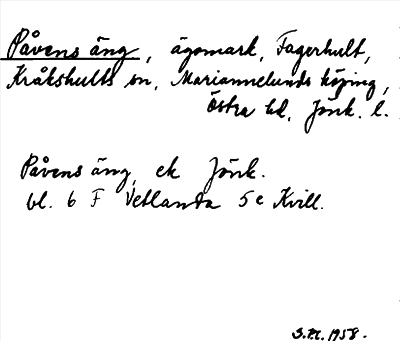 Påvens äng, ägomark, Fagerhult,
Kråkshults sn, Mariannelunds köping,
Östra hd, Jönk. l.
Påvens äng, ek Jönk.
bl. 6 F Vetlanda 5e Kvill.
1958.